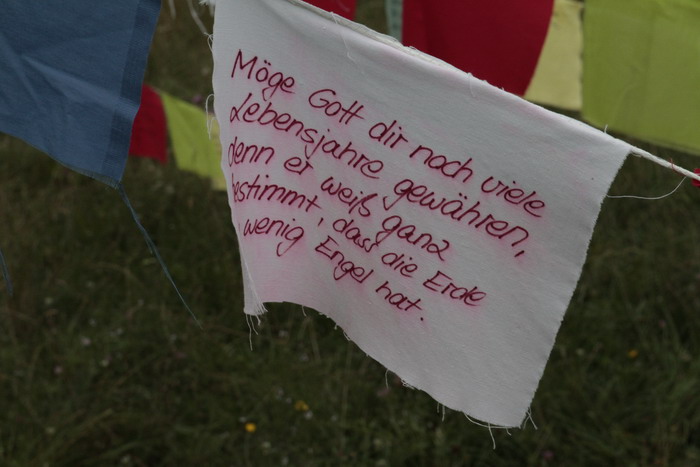 Möge Gott dir noch viele
Lebensjahre gewähren,
denn er weiß ganz
bestimmt, dass die Erde
wenig Engel hat.